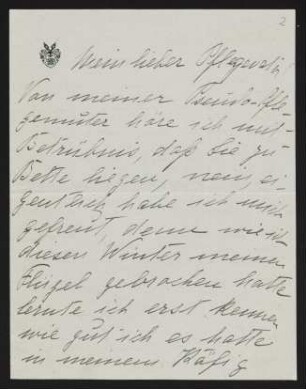 2
Mein lieber Pflegevati!
Von meiner Pseudo-Pfle
gemutter höre ich mit
Betrübnis, daß Sie zu
Bette liegen, nein, ei
gentlich habe ich mich
gefreut, denn wie ich
diesen Winter meinen
Flügel gebrochen hatte
lernte ich erst kennen
wie gut ich es hatte
in meinem Käfig